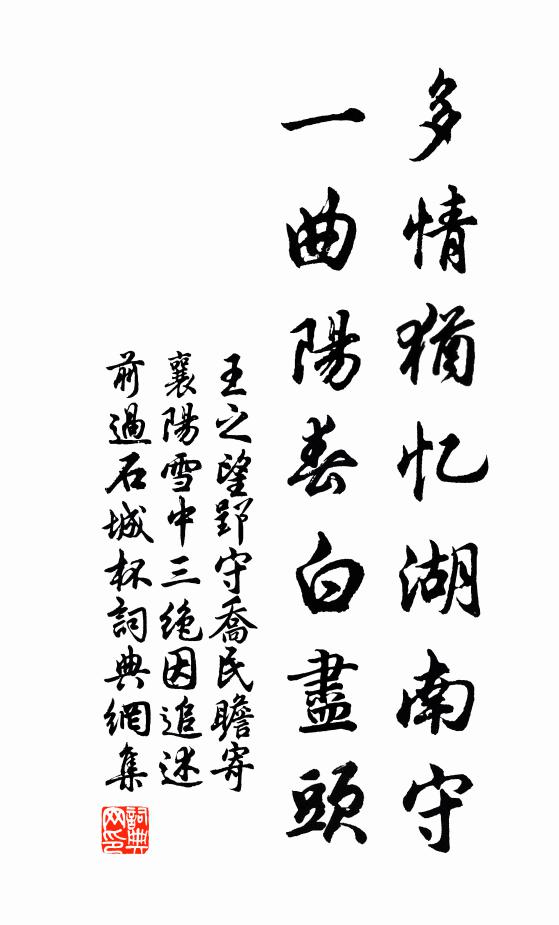 多情猶忆湖南守
一曲陽春白盡頭
王之望郢守喬民瞻寄
襄陽雪中三绝因追述
前過石城杯詞典網集
詞典网印